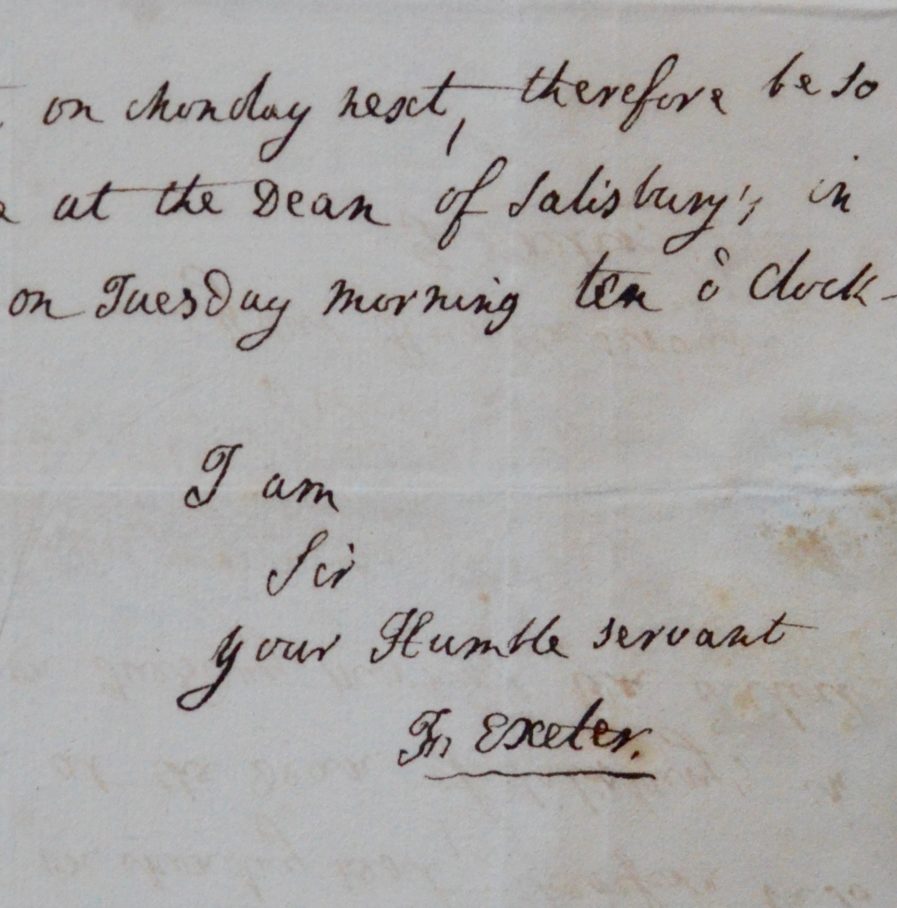 on Monday next, therefore be so
at the Dean of Salisbury's in
on Tuesday morning ten o Clock-
I am
Sir
your Humble servant
Exeter.